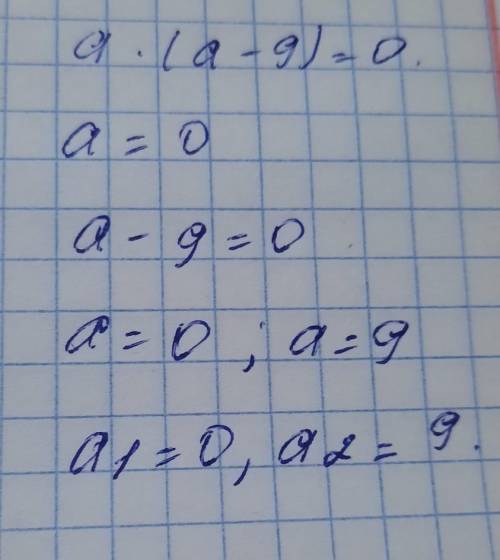 a · (a - 9) = 0.
a = 0
a - 9 = 0
a = 0 ; a = 9
a1 = 0, a2 = 9.